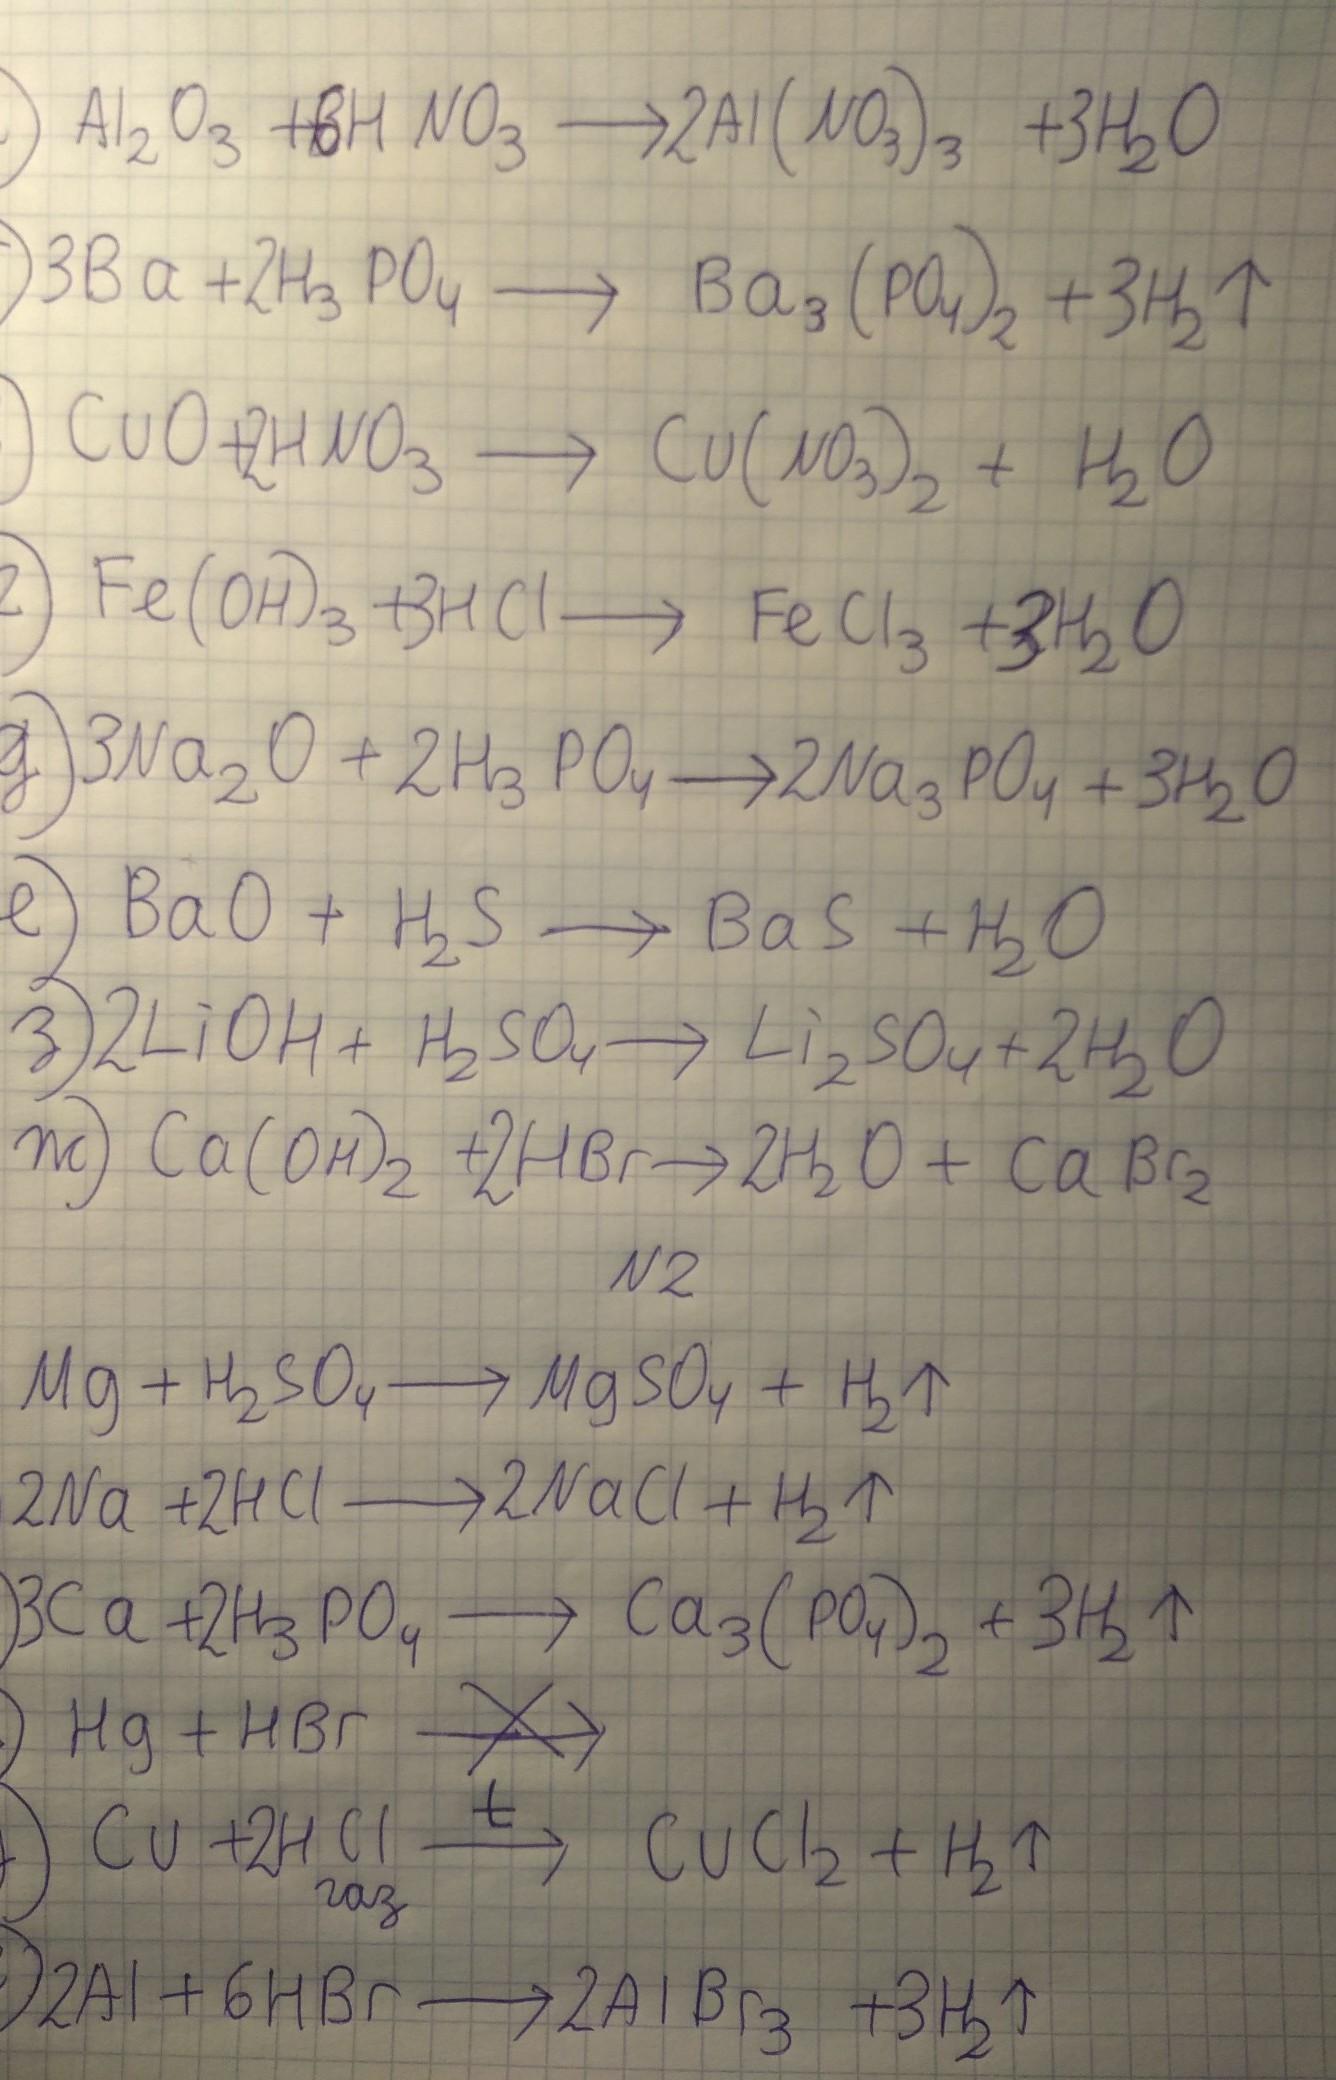 ) Al₂O₃ + 6HNO₃ → 2Al(NO₃)₃ + 3H₂O
) 3Ba + 2H₃PO₄ → Ba₃(PO₄)₂ + 3H₂↑
) CuO + 2HNO₃ → Cu(NO₃)₂ + H₂O
г) Fe(OH)₃ + 3HCl → FeCl₃ + 3H₂O
д) 3Na₂O + 2H₃PO₄ → 2Na₃PO₄ + 3H₂O
е) BaO + H₂S → BaS + H₂O
з) 2LiOH + H₂SO₄ → Li₂SO₄ + 2H₂O
ж) Ca(OH)₂ + 2HBr → 2H₂O + CaBr₂
N2
Mg + H₂SO₄ → MgSO₄ + H₂↑
2Na + 2HCl → 2NaCl + H₂↑
) 3Ca + 2H₃PO₄ → Ca₃(PO₄)₂ + 3H₂↑
) Hg + HBr ↛
t
) Cu + 2HCl → CuCl₂ + H₂↑
газ
) 2Al + 6HBr → 2AlBr₃ + 3H₂↑